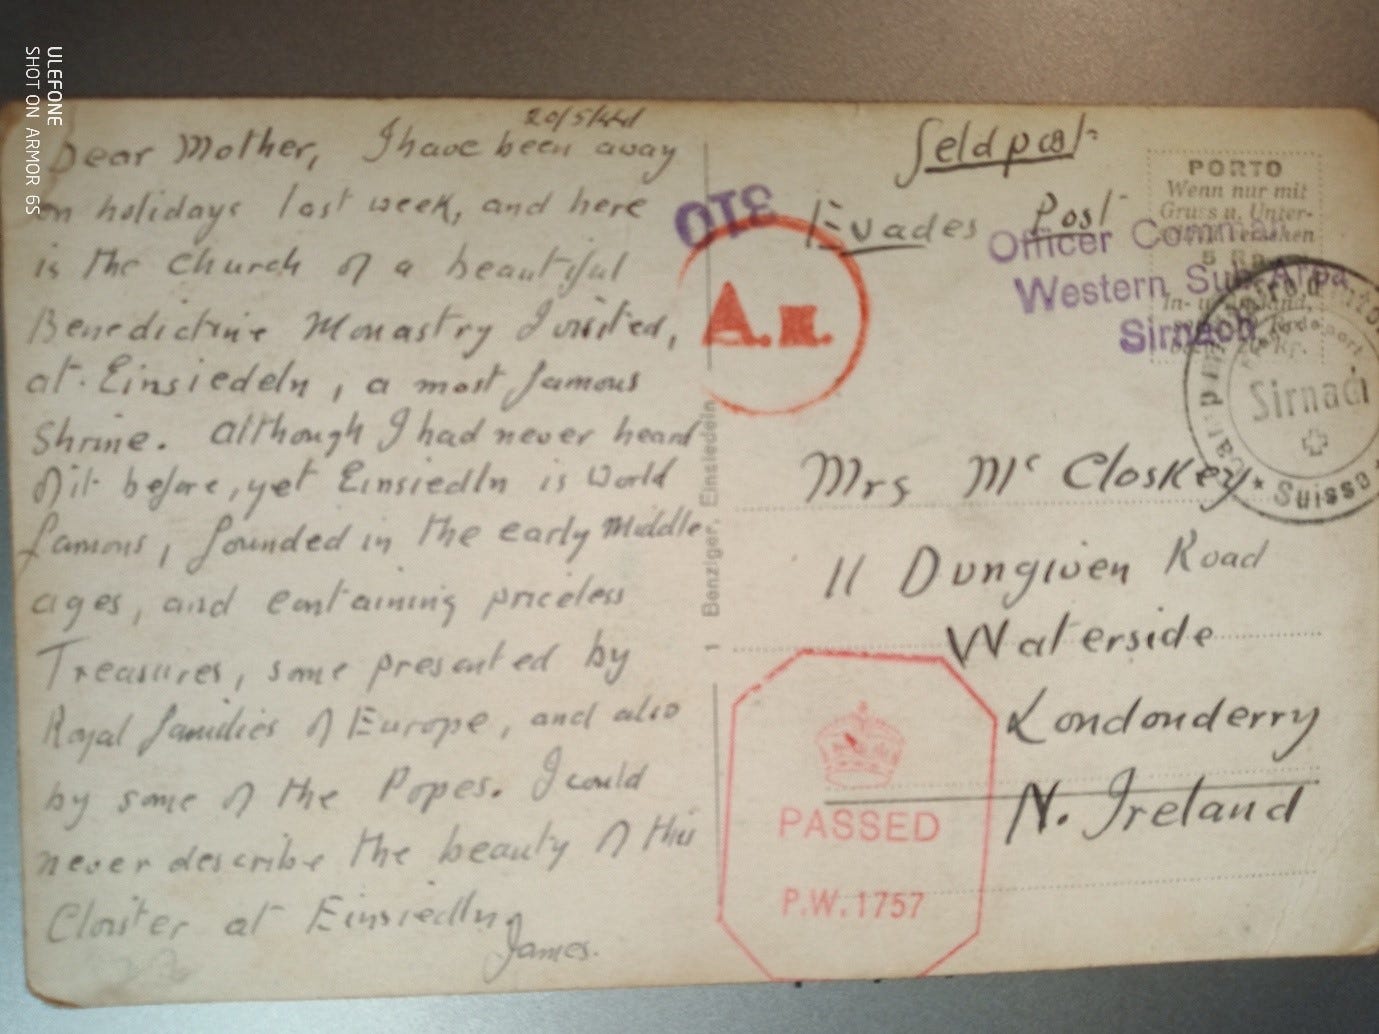 ULEFONE
SHOT ON ARMOR 6S
20/5/44
Dear Mother, I have been away
on holidays last week, and here
is the Church of a beautiful
Benedictine Monastry I visited,
at Einsiedeln, a most famous
Shrine. Although I had never heard
of it before, yet Einsiedln is world
famous, founded in the early Middle
ages, and containing priceless
Treasures, some presented by
Royal families of Europe, and also
by some of the Popes. I could
never describe the beauty of this
Cloister at Einsiedln
James.
Benziger, Einsiedeln
OTE
A.
Feldpost
Evades Post
PORTO
Wenn nur mit
Gruss u. Unter-
Officer
Western Sub Area
Sirnach
Sirnach
Suisse
Mrs McCloskey
11 Dungiven Road
Waterside
Londonderry
N. Ireland
PASSED
P.W. 1757